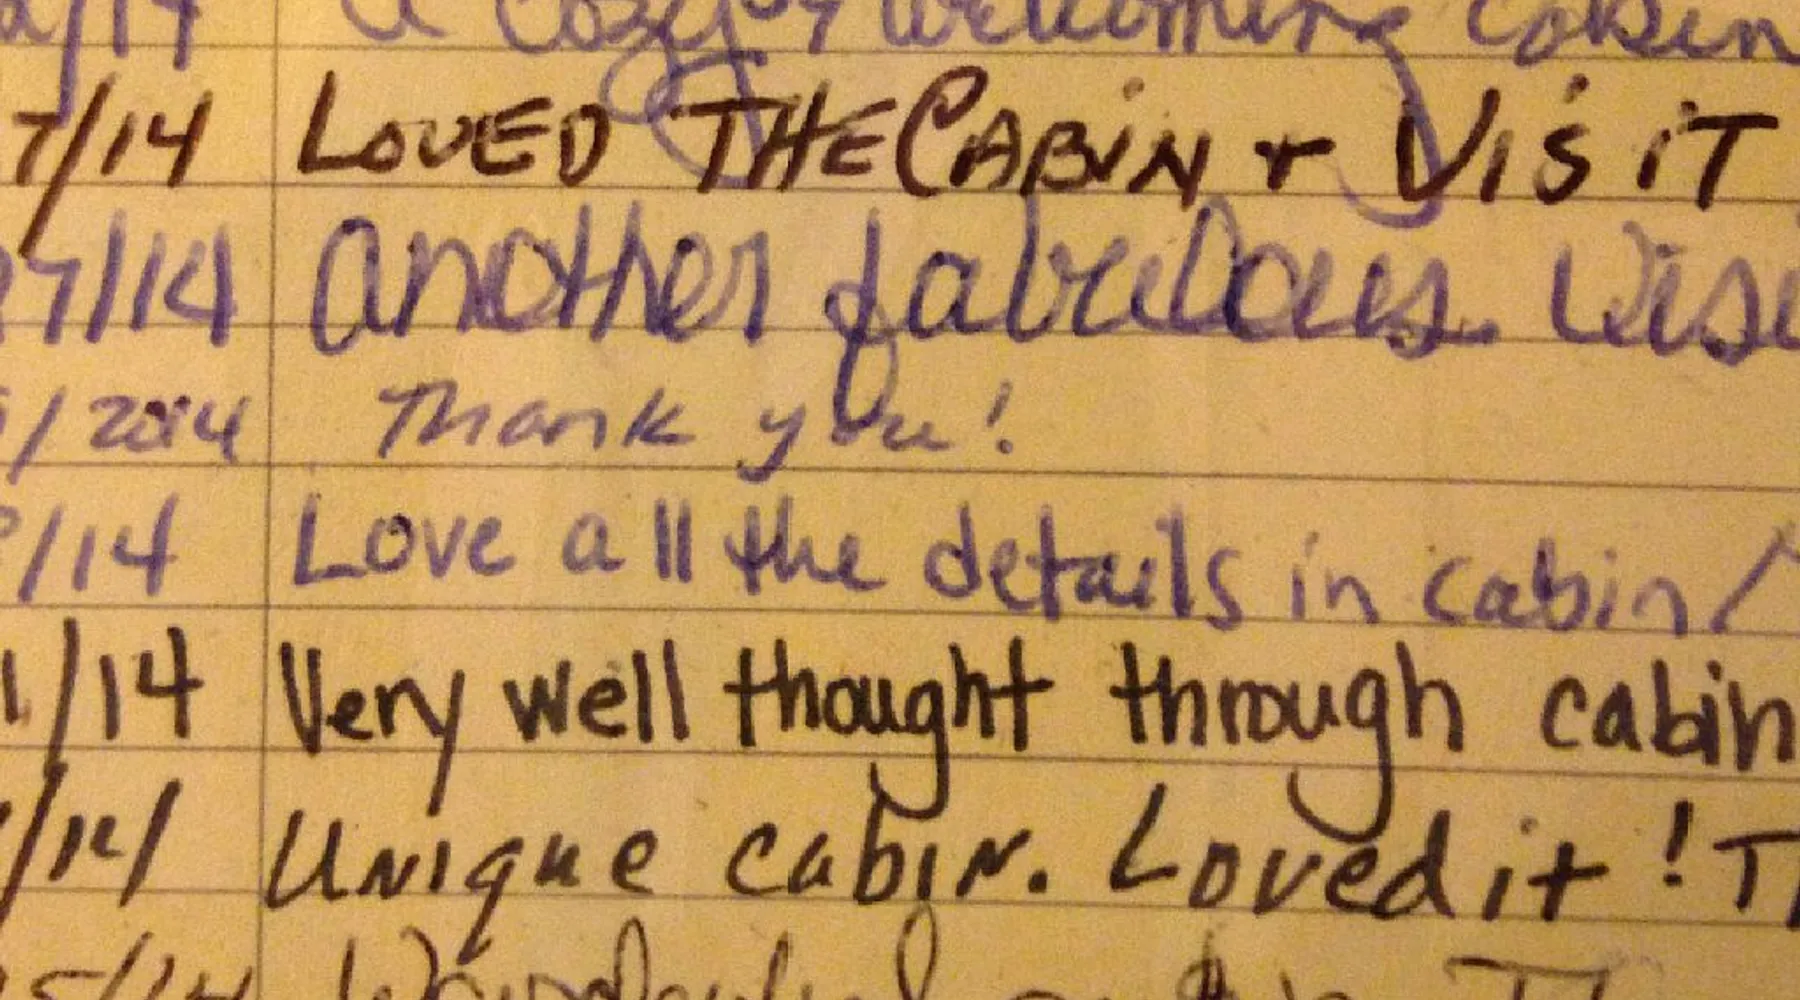 /14 a cozy & welcoming cabin
7/14 LOVED THE CABIN + VISIT
27/14 another fabulous. Visi
/2014 Thank you!
/14 Love all the details in cabin!
1/14 Very well thought through cabin
/14 Unique cabin. Loved it! T
5/14 Wonderful